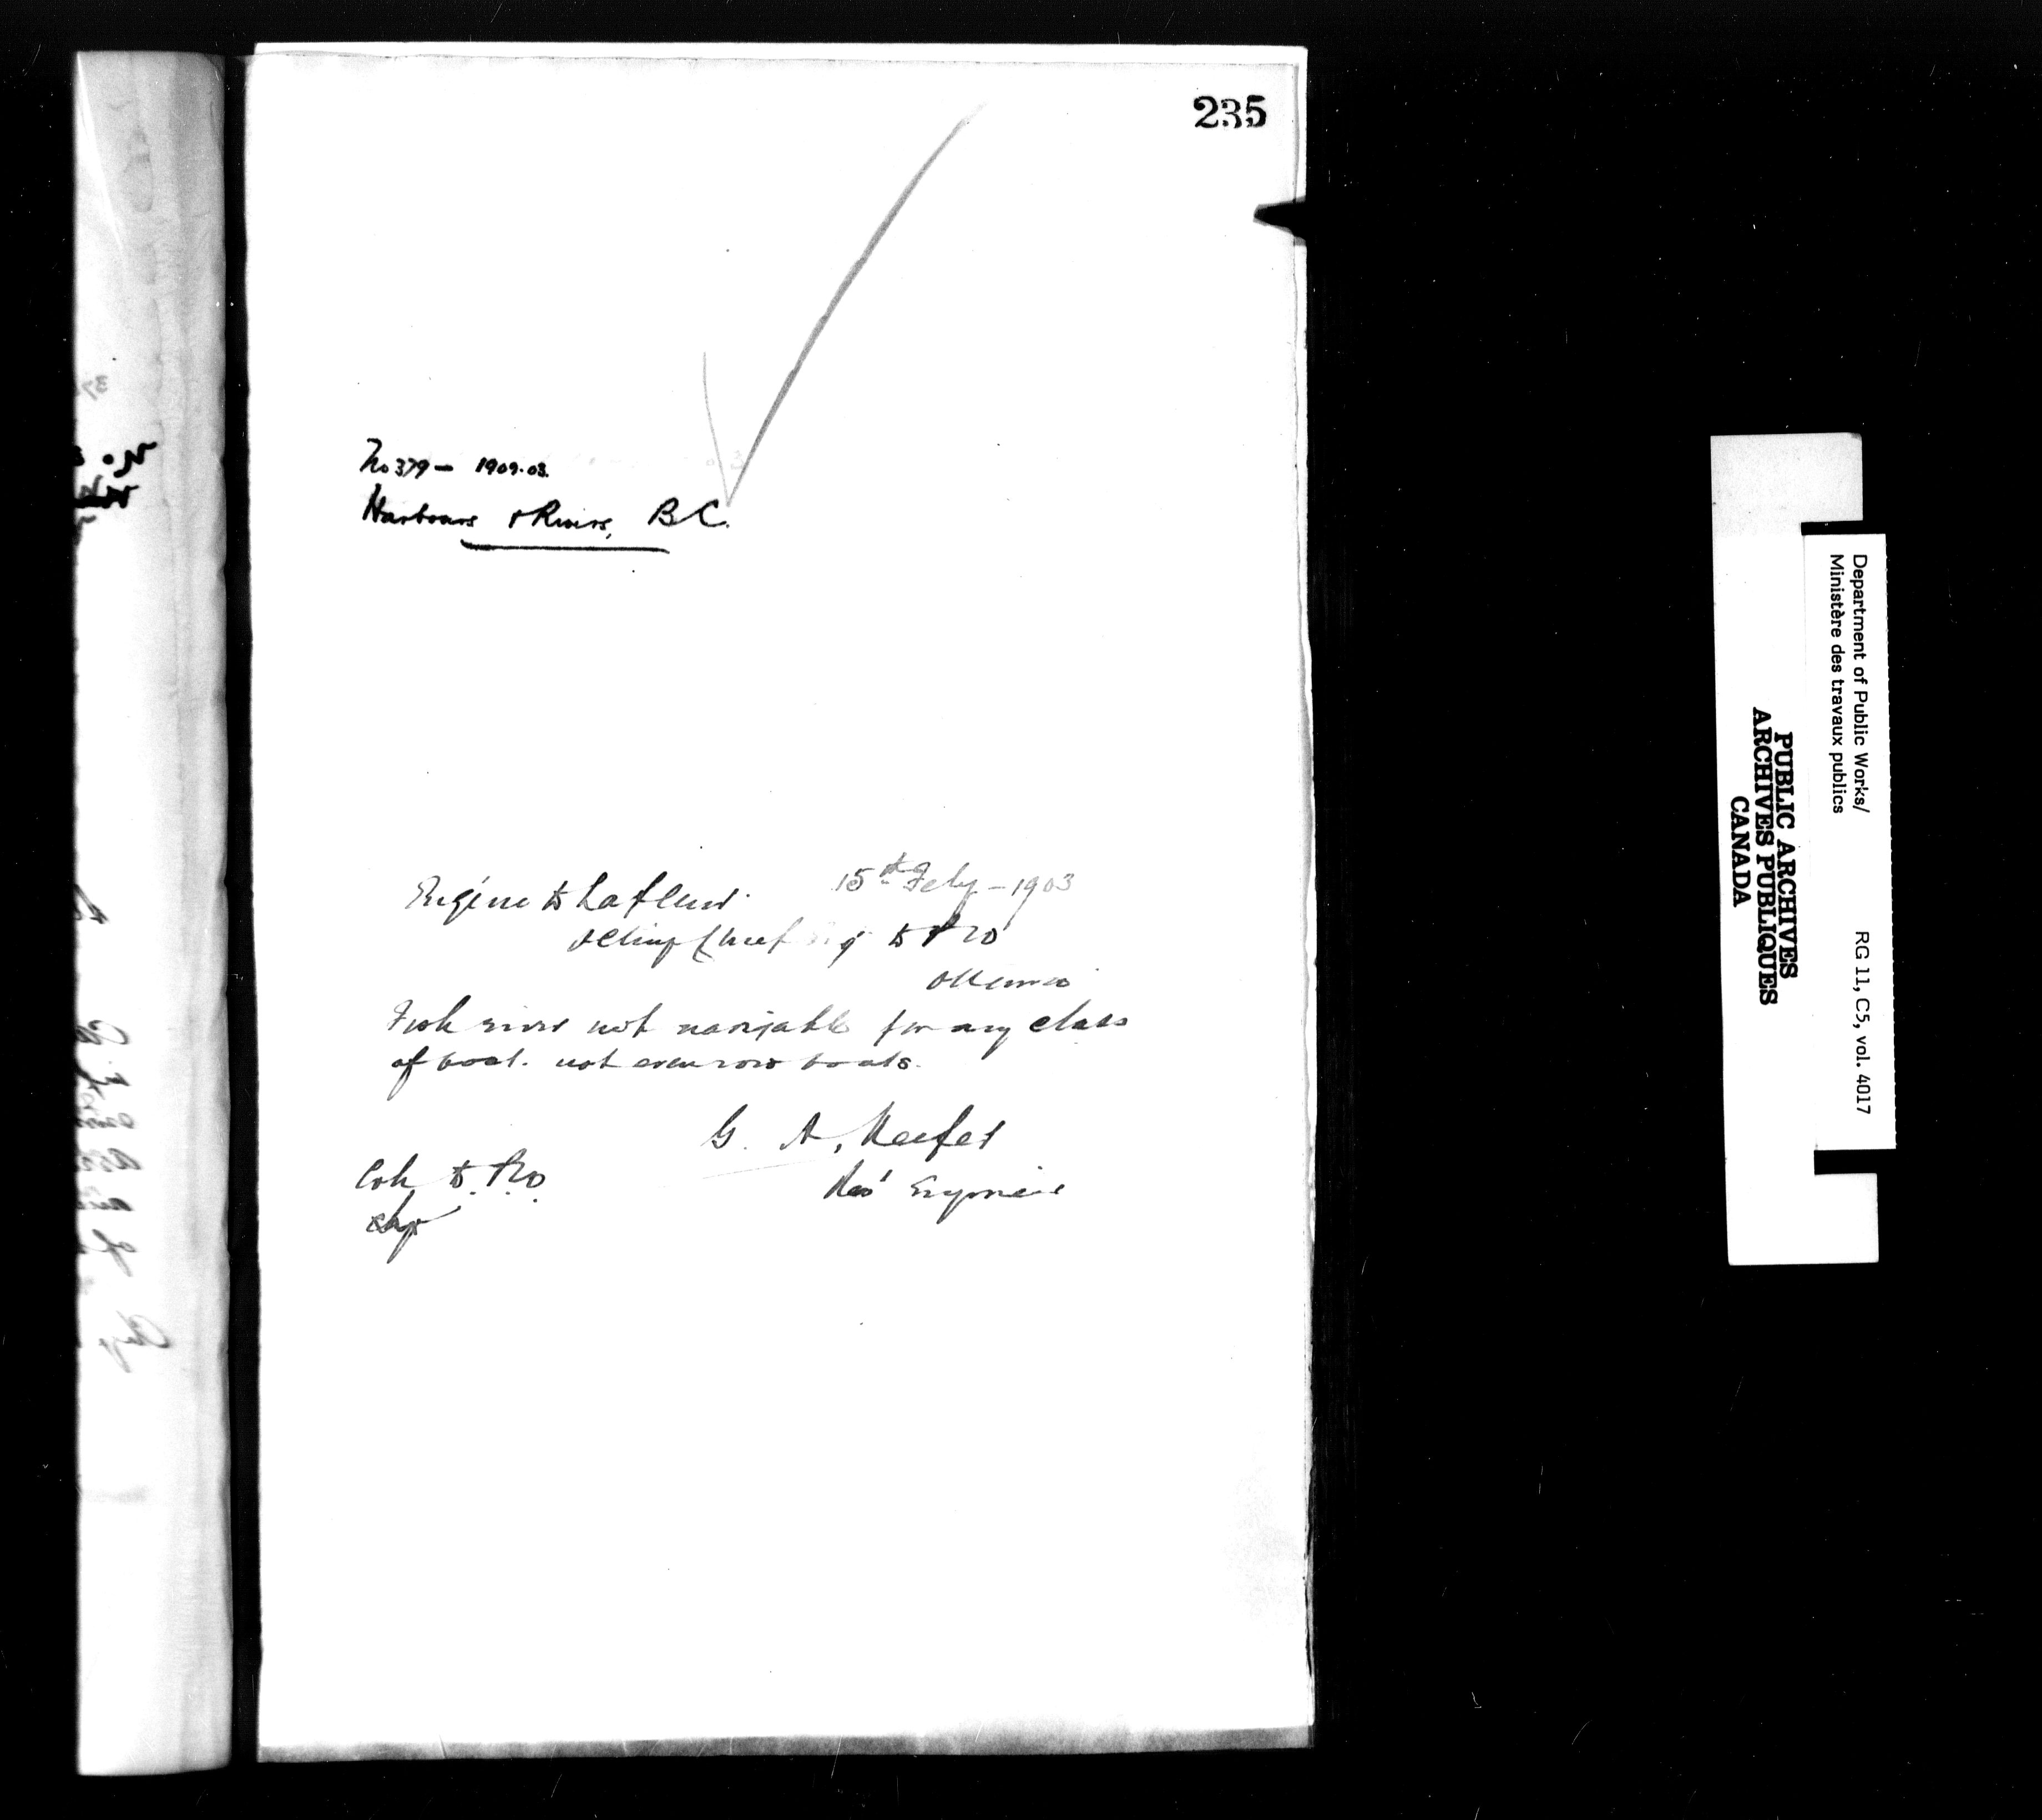 235
No 379 – 1902-03.
Harbours & Rivers, B C.
15th Feby – 1903
Eugène D Lafleur.
Acting Chief Eng D P W
Ottawa
Fish river not navigable for any class
of boat. not even row boats.
G. A. Keefer
Res' Engineer
Coll D. P. W.
Chgo
Department of Public Works/
Ministère des travaux publics
RG 11, C5, vol. 4017
PUBLIC ARCHIVES
ARCHIVES PUBLIQUES
CANADA